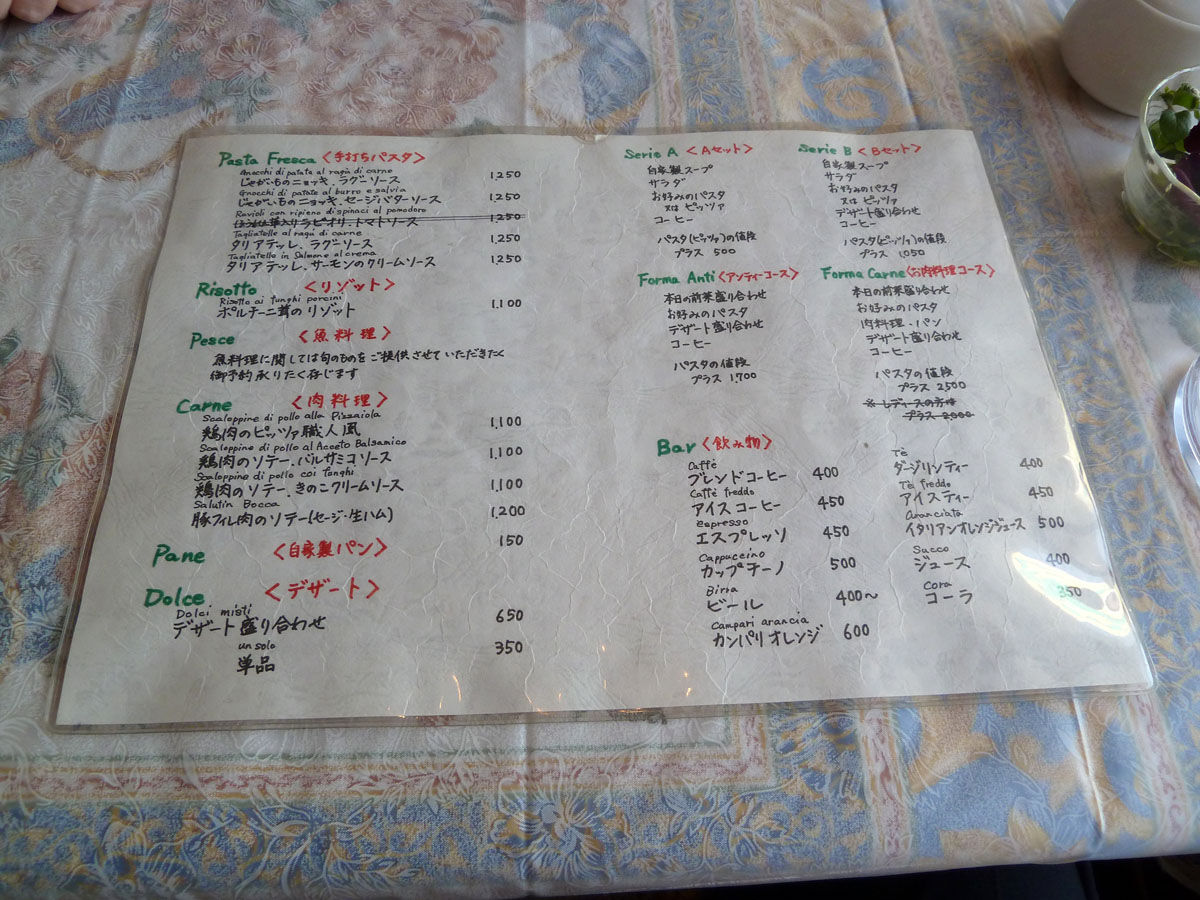 Pasta Fresca <手打ちパスタ>
Gnocchi di patate al ragù di carne
じゃがいものニョッキ、ラグーソース 1,250
Gnocchi di patate al burro e salvia
じゃがいものニョッキ、セージバターソース 1,250
Ravioli con ripieno di spinaci al pomodoro
ほうれん草入りラビオリ、トマトソース 1,250
Tagliatelle al ragù di carne
タリアテッレ、ラグーソース 1,250
Tagliatelle in Salmone al crema
タリアテッレ、サーモンのクリームソース 1,250
Risotto <リゾット>
Risotto ai funghi porcini
ポルチーニ茸のリゾット 1,100
Pesce <魚料理>
魚料理に関しては旬のものをご提供させていただきたく
御予約承りたく存じます
Carne <肉料理>
Scaloppine di pollo alla Pizzaiola
鶏肉のピッツァ職人風 1,100
Scaloppine di pollo al Aceeto Balsamico
鶏肉のソテー、バルサミコソース 1,100
Scaloppine di pollo coi funghi
鶏肉のソテー、きのこクリームソース 1,100
Salutin Bocca
豚フィレ肉のソテー(セージ・生ハム) 1,200
Pane <自家製パン> 150
Dolce <デザート>
Dolci misti
デザート盛り合わせ 650
un solo
単品 350
Serie A <Aセット>
自家製スープ
サラダ
お好みのパスタ
又は ピッツァ
コーヒー
パスタ(ピッツァ)の値段
プラス 500
Serie B <Bセット>
自家製スープ
サラダ
お好みのパスタ
又は ピッツァ
デザート盛り合わせ
コーヒー
パスタ(ピッツァ)の値段
プラス 1,050
Forma Anti <アンティーコース>
本日の前菜盛り合わせ
お好みのパスタ
デザート盛り合わせ
コーヒー
パスタの値段
プラス 1,700
Forma Carne <お肉料理コース>
本日の前菜盛り合わせ
お好みのパスタ
肉料理・パン
デザート盛り合わせ
コーヒー
パスタの値段
プラス 2500
※レディースの方は
プラス 2,000
Bar <飲み物>
Caffè
ブレンドコーヒー 400
Caffè freddo
アイスコーヒー 450
espresso
エスプレッソ 450
Cappuccino
カップチーノ 500
Birra
ビール 400〜
Campari arancia
カンパリオレンジ 600
Tè
ダージリンティー 400
Tè freddo
アイスティー 450
Aranciata
イタリアンオレンジジュース 500
Succo
ジュース 400
Cora
コーラ 350